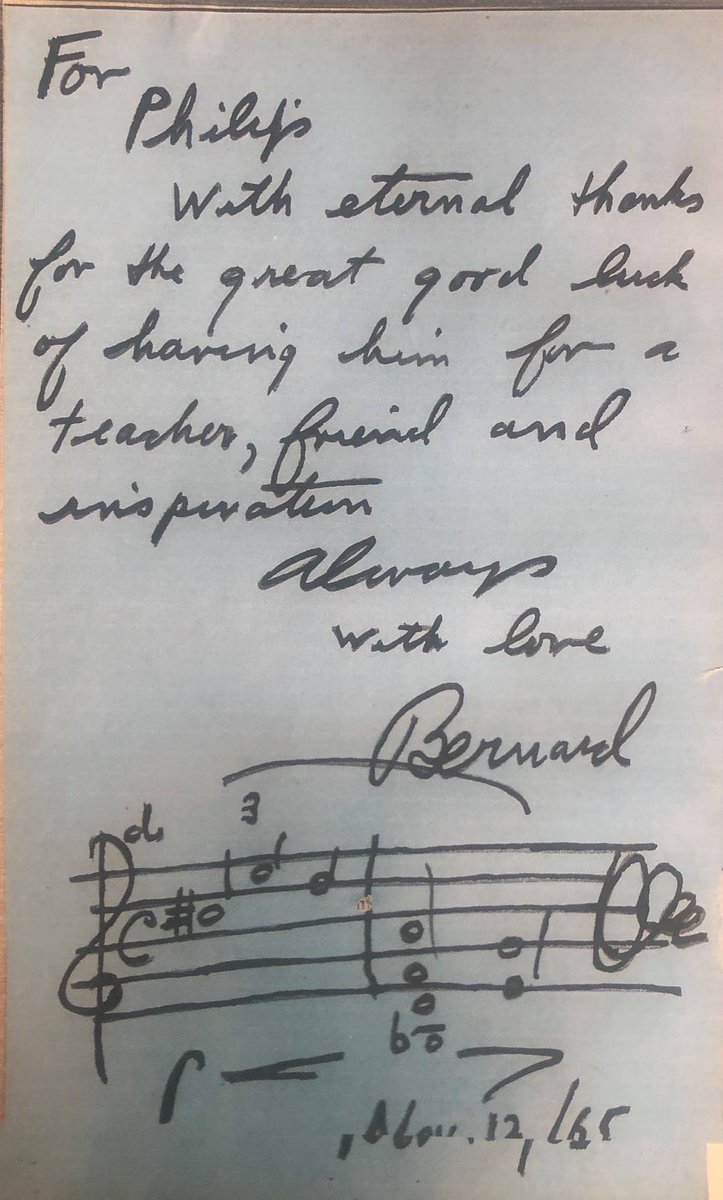 For
Philip
With eternal thanks
for the great good luck
of having him for a
teacher, friend and
inspiration
Always
with love
Bernard
3
Nov. 12, /65